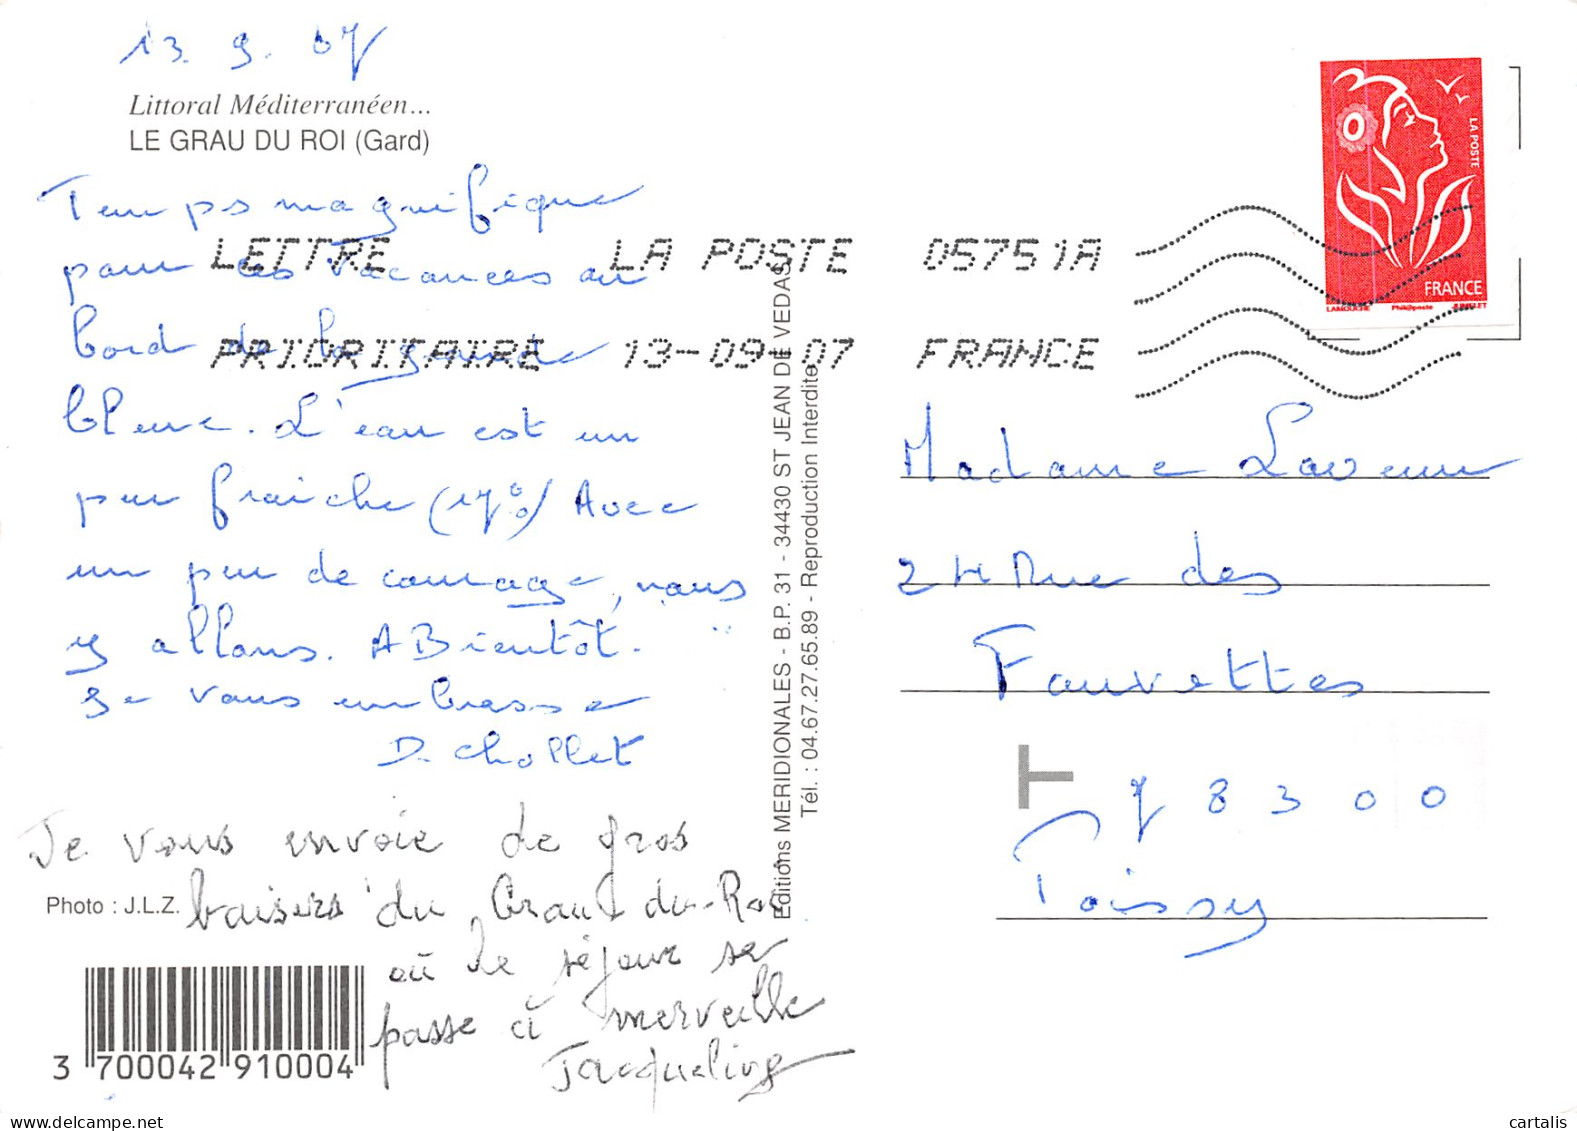 13. 9. 07
Littoral Méditerranéen...
LE GRAU DU ROI (Gard)
Temps magnifique
pour les vacances au
bord de la grande
bleue. L'eau est un
peu fraîche (17%) Avec
un peu de courage, nous
y allons. A Bientôt.
Je vous embrasse
D. Chollet
Je vous envoie de gros
baisers du Grau du Roi
où le séjour se
passe à merveille
Jacqueline
Photo : J.L.Z.
3 700042 910004
Editions MERIDIONALES - B.P. 31 - 34430 ST JEAN DE VEDAS
Tél. : 04.67.27.65.89 - Reproduction Interdite
LETTRE LA POSTE 05751A
PRIORITAIRE 13-09-07 FRANCE
LA POSTE
FRANCE
LAMOUCHE Phil@poste
Madame
24 Rue des
Fauvettes
T 78300
Poissy
cartalis